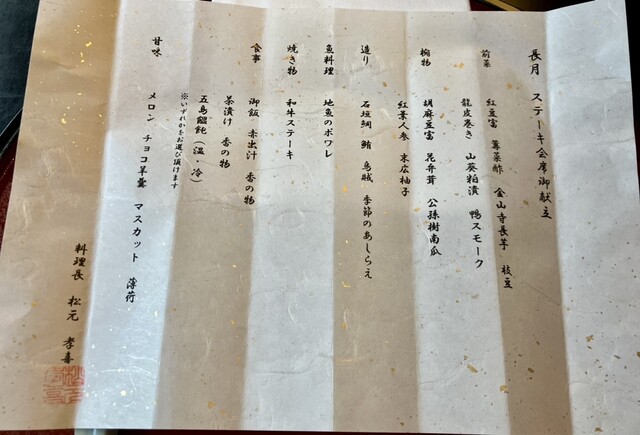 長月 ステーキ会席御献立
前菜
紅豆富 蓴菜酢 金山寺長芋 枝豆
龍皮巻き 山葵粕漬 鴨スモーク
椀物
胡麻豆富 茸 公孫樹南瓜
紅葉人参 末広柚子
造り
石垣鯛 鮪 烏賊 季節のあしらえ
魚料理
地魚のポワレ
焼き物
和牛ステーキ
食事
御飯 赤出汁 香の物
茶漬け 香の物
五島饂飩(温・冷)
※いずれかをお選び頂けます
甘味
メロン チョコ羊羹 マスカット 薄荷
料理長 松元 孝喜